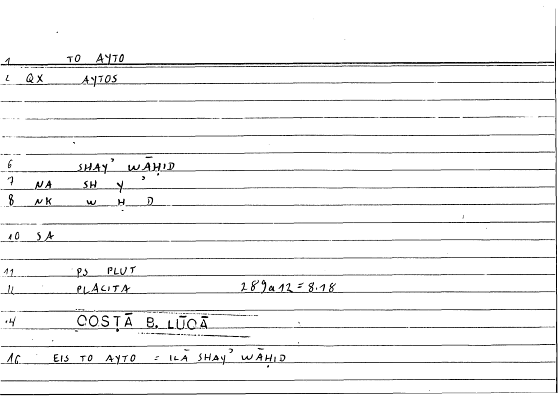 1 TO AYTO
2 QX AYTOS
6 SHAYʾ WĀḤID
7 NA SH Y ʾ
8 NK W Ḥ D
10 SA
11 PS PLUT
12 PLACITA 289a12 = 8.18
14 COSṬĀ B. LŪQĀ
16 EIS TO AYTO = ILĀ SHAYʾ WĀḤID